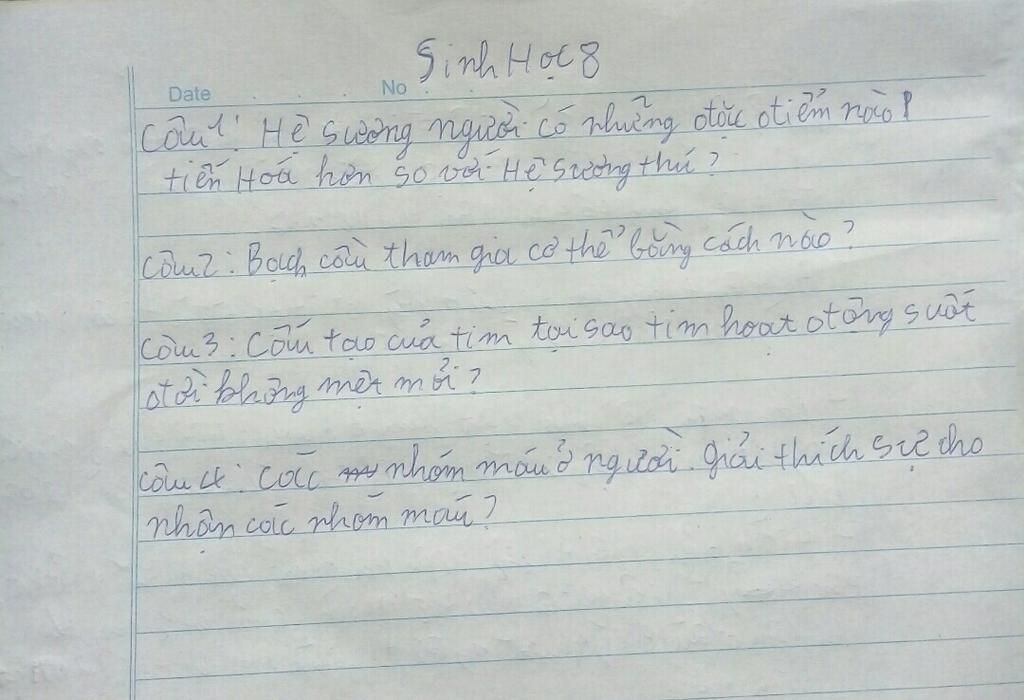 Sinh Học 8
Date No
Câu 1: Hệ sương người có những đặc điểm nào
tiến Hoá hơn so với Hệ sương thú?
Câu 2: Bạch cầu tham gia cơ thể bằng cách nào?
Câu 3: Cấu tạo của tim tại sao tim hoạt động suốt
đời không mệt mỏi?
Câu 4: Các nhóm máu ở người. giải thích sự cho
nhận các nhóm máu?